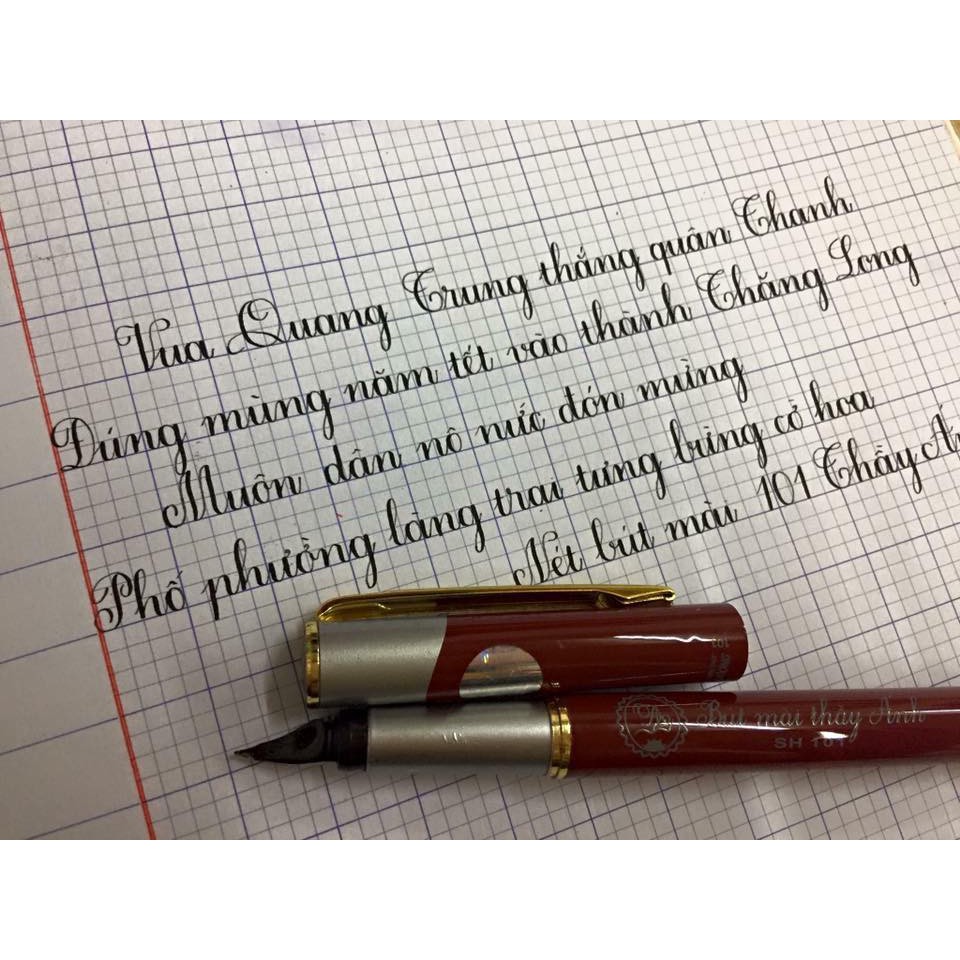 Vua Quang Trung thắng quân Thanh
Đúng mùng năm tết vào thành Thăng Long
Muôn dân nô nức đón mừng
Phố phường làng trại tưng bừng cỏ hoa
Nét bút mài 101 Thầy Án
Bút mài thầy Ánh
SH 101
101